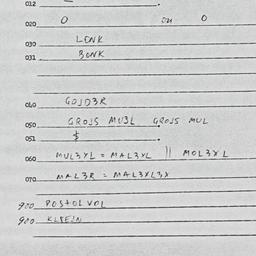 012
020 O on O
030 LENK
031 BONK
040 GOJD3R
050 GROJS MUSL GROJS MUL
051 $
060 MUL3YL = MAL3YL || MOL3YL
070 MAL3R = MAL3YL3Y
900 POSTOL VOL
900 KLEEJN